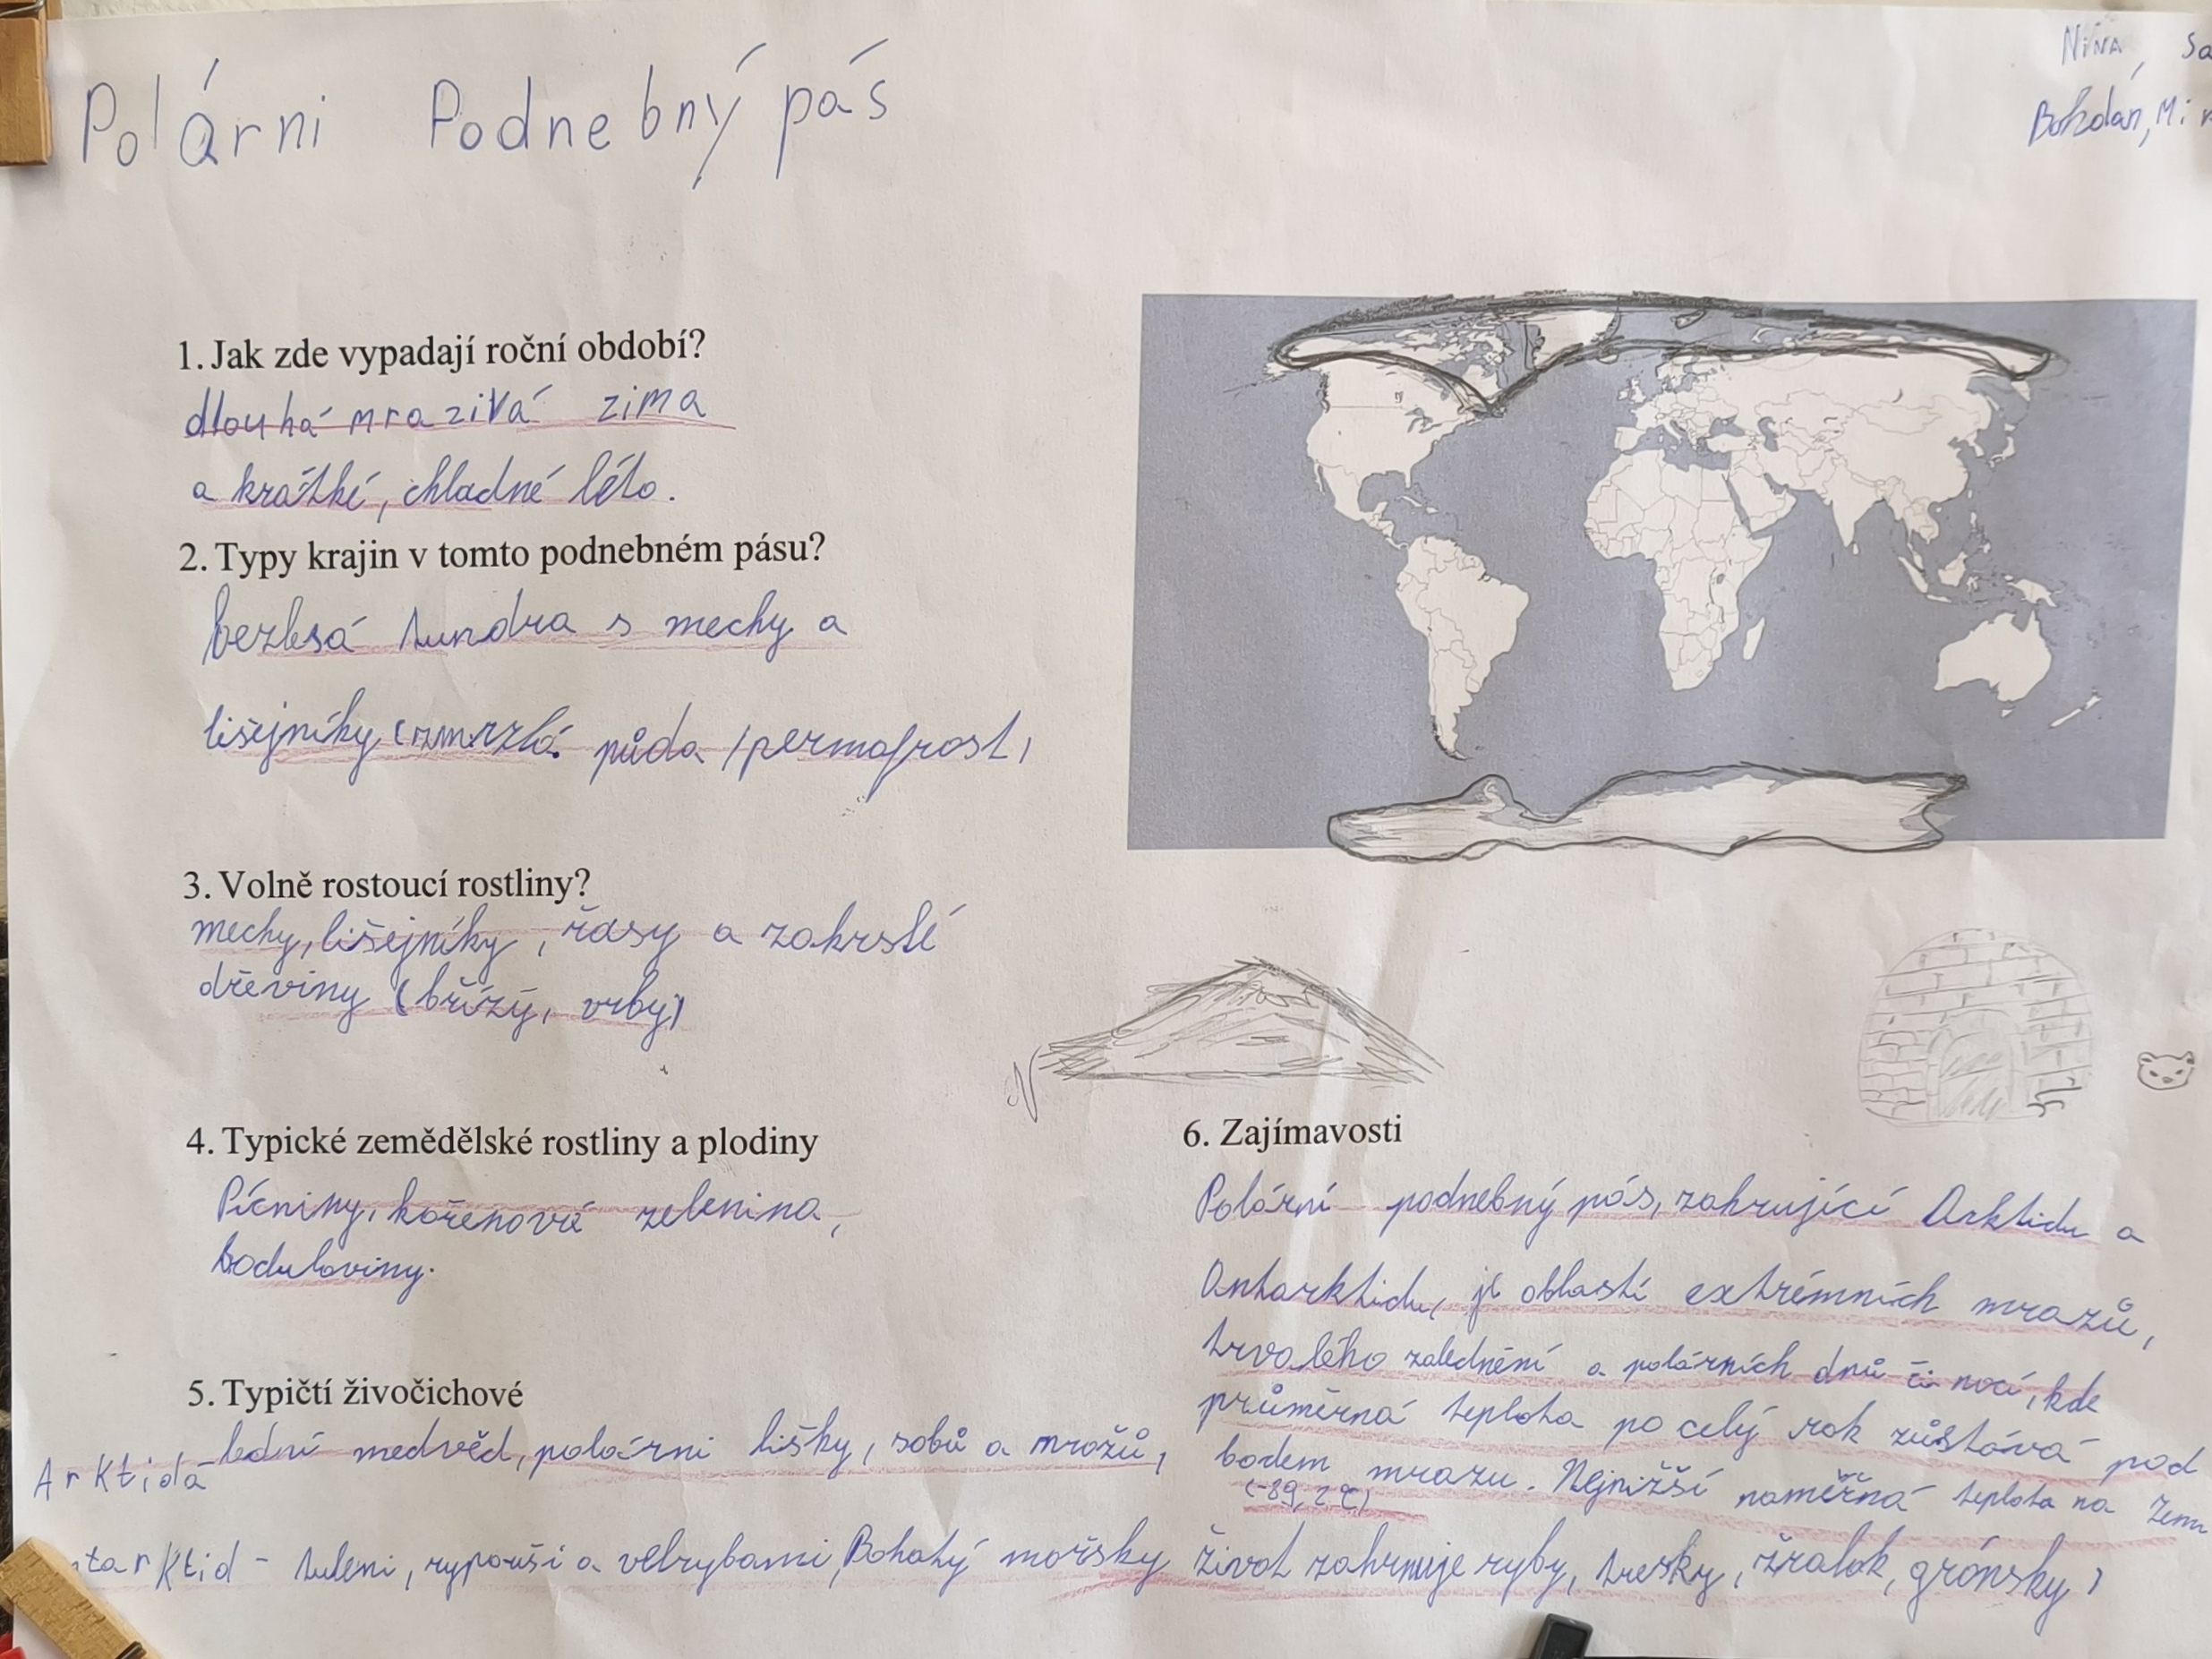 Polárni Podnebný pás
Nina, Sa
Bohdan, Mi
1. Jak zde vypadají roční období?
dlouhá mrazivá zima
a krátké, chladné léto.
2. Typy krajin v tomto podnebném pásu?
bezlesá tundra s mechy a
lišejníky (zmrzlá půda /permafrost)
3. Volně rostoucí rostliny?
mechy, lišejníky, řasy a zakrslé
dřeviny (břízy, vrby)
4. Typické zemědělské rostliny a plodiny
Pícniny, kořenové zelenina,
boduloviny.
5. Typičtí živočichové
Arktidá lední medvěd, polárni lišky, sobů a mrožů,
ntarktid - tuleni, rypouši a velrybami, Bohatý mořsky život zahrnuje ryby, tresky, žralok, grónsky)
6. Zajímavosti
Polární podnebný pás, zahrující Arktidu a
Antarktidu, je oblastí extrémních mrazů,
trvalého zalednění a polárních dnů či nocí, kde
průměrná teplota po celý rok zůstává pod
bodem mrazu. Nejnižší naměřná teplota na Zemi
(-89,2 °C)